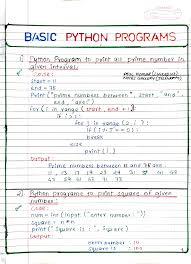 BASIC PYTHON PROGRAMS
1) Python Program to print all prime number in
given interval.
Code:
start = 11
end = 75
print ("prime numbers between", start, "and",
end, "are:")
for i in range (start, end + 1):
if i > 1:
for j in range (2, i):
if (i % j == 0):
break
else:
print (i)
Output:
Prime numbers between 11 and 75 are:
11 13 17 19 23 29 31 37 41
43 47 53 59 61 67 71 73
2) Python programe to print square of given
number.
Code:
num = int (input ("enter number: "))
print ("Square is:", Square)
Output:
enter number: 10
Square is: 100